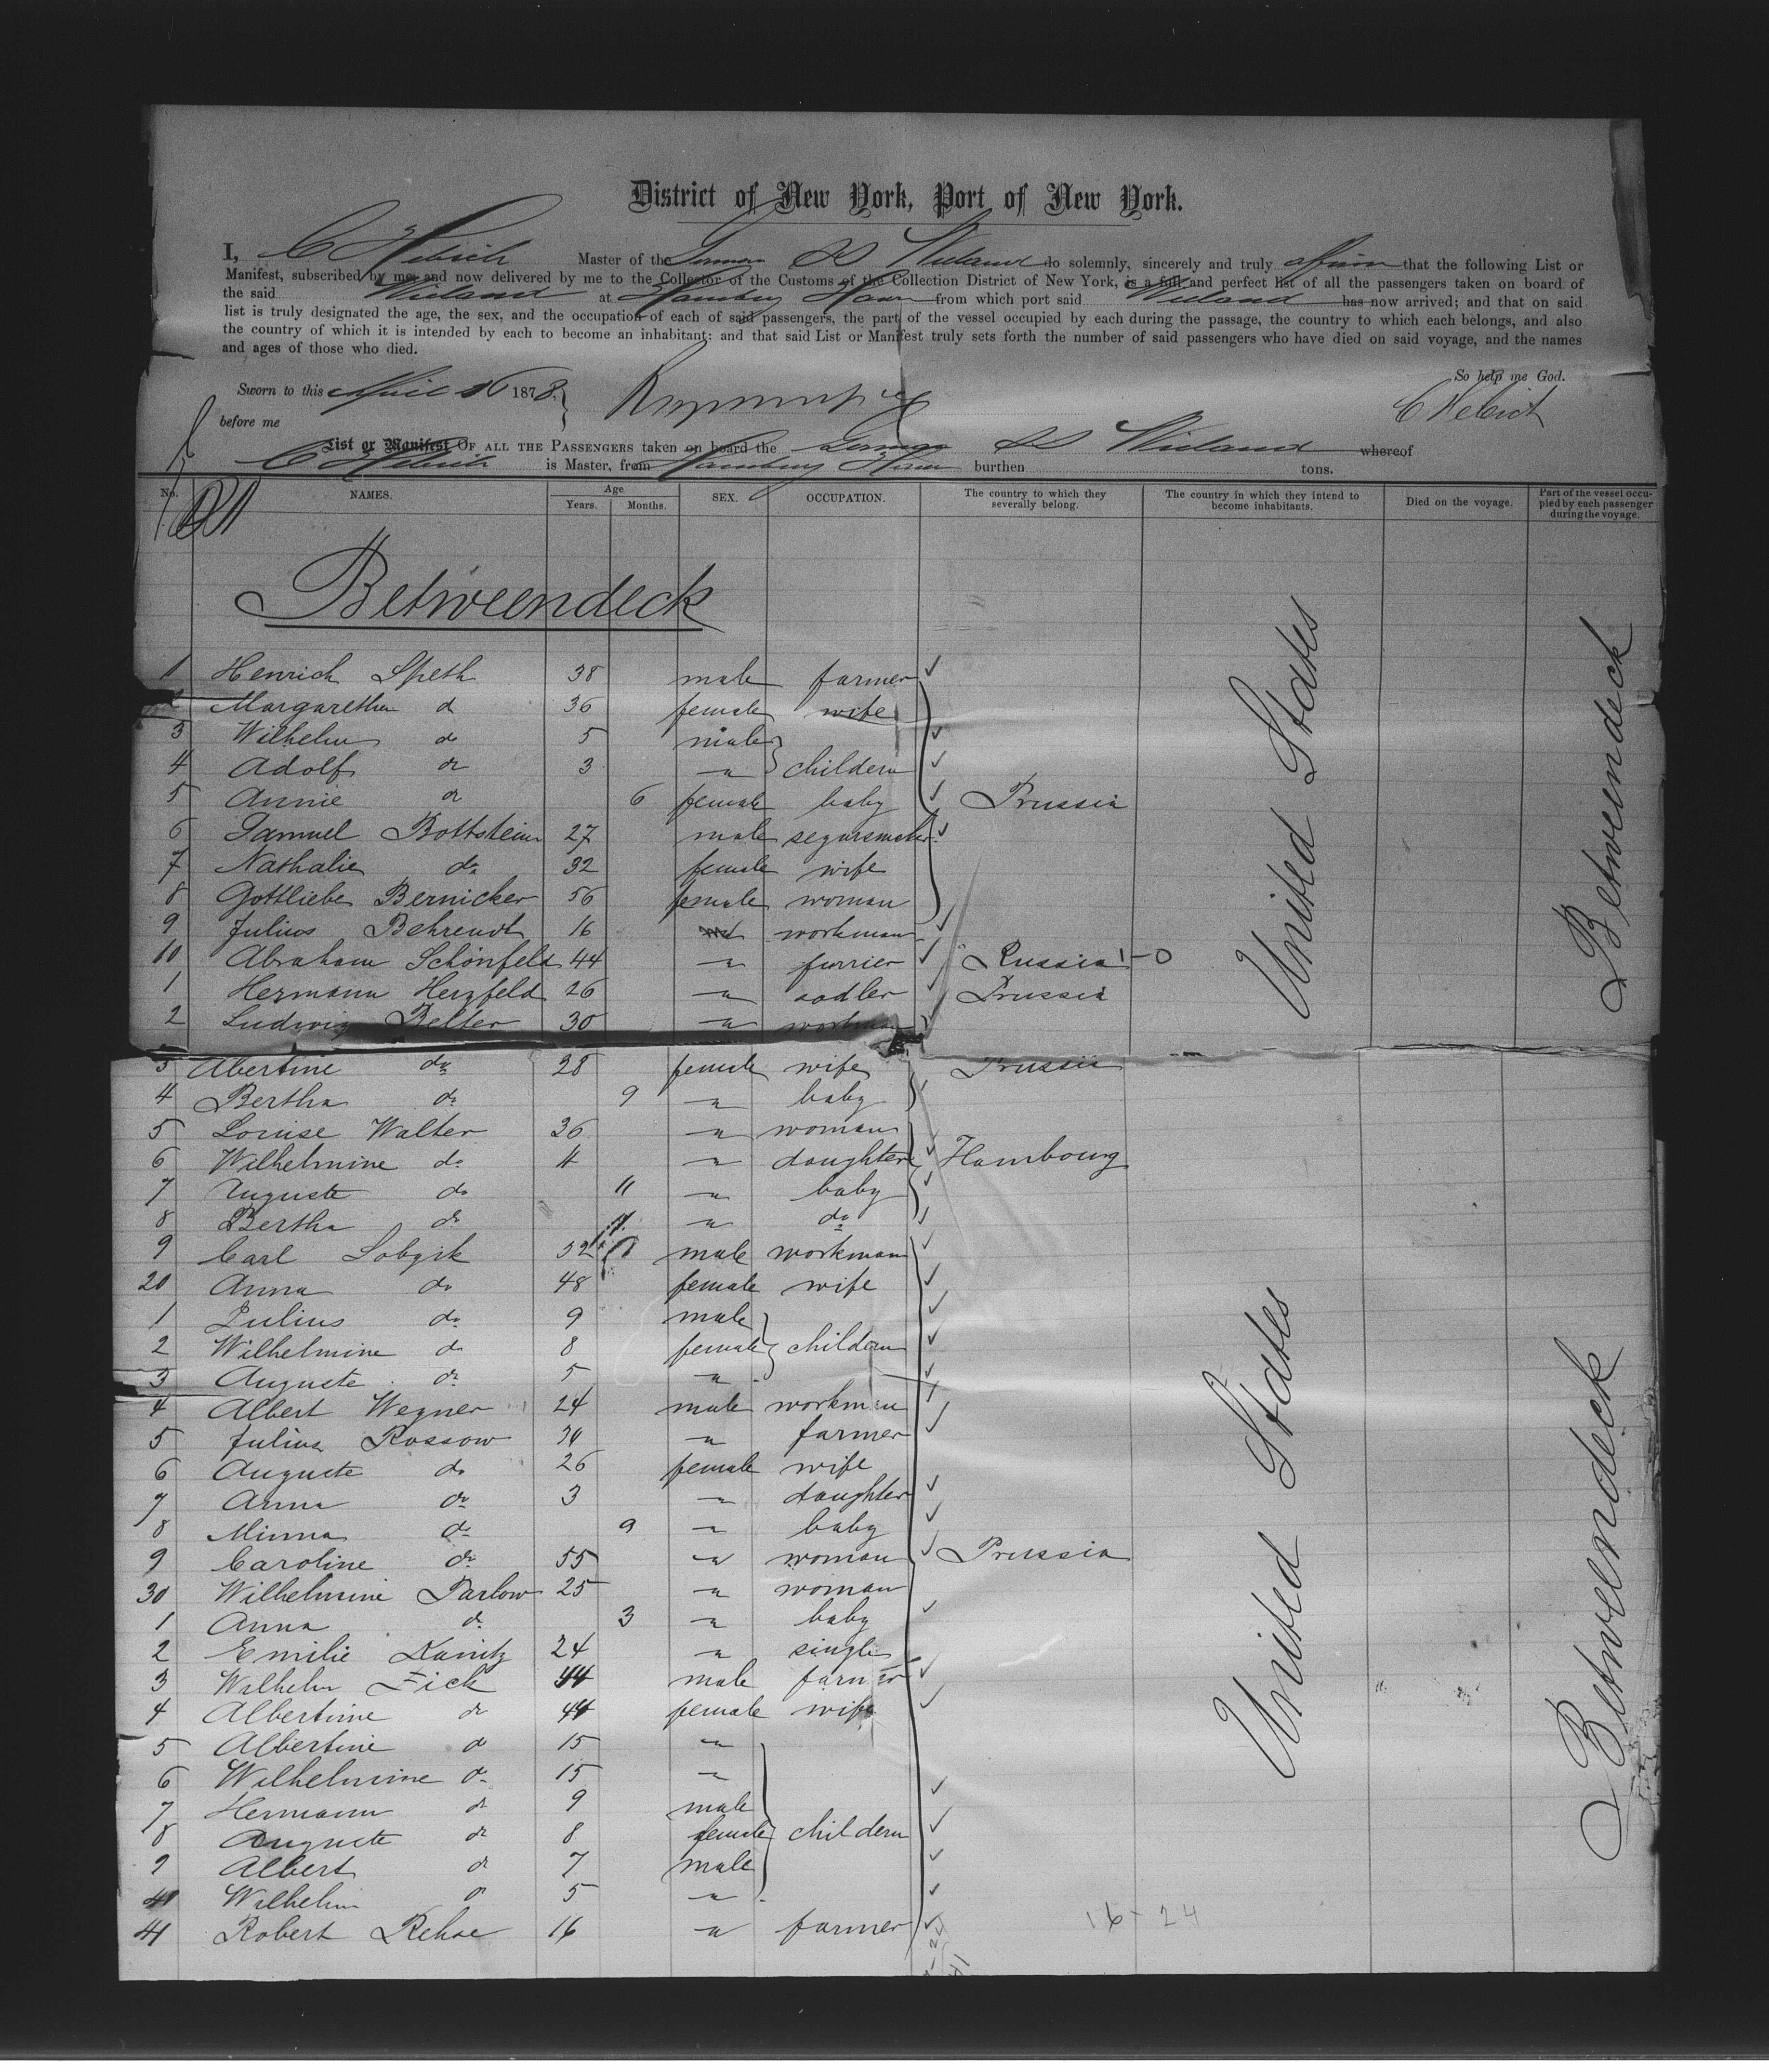 District of New York, Port of New York.
I, C Hebich Master of the German SS Wieland do solemnly, sincerely and truly affirm that the following List or
Manifest, subscribed by me and now delivered by me to the Collector of the Customs of the Collection District of New York, is a full and perfect list of all the passengers taken on board of
the said Wieland at Hamburg Havre from which port said Wieland has now arrived; and that on said
list is truly designated the age, the sex, and the occupation of each of said passengers, the part of the vessel occupied by each during the passage, the country to which each belongs, and also
the country of which it is intended by each to become an inhabitant; and that said List or Manifest truly sets forth the number of said passengers who have died on said voyage, and the names
and ages of those who died.
So help me God.
Sworn to this April 26 1878.
C Hebich
before me
List or Manifest OF ALL THE PASSENGERS taken on board the German SS Wieland whereof
C Hebich is Master, from Hamburg Havre burthen tons.
No. NAMES. Age Years. Months. SEX. OCCUPATION. The country to which they severally belong. The country in which they intend to become inhabitants. Died on the voyage. Part of the vessel occupied by each passenger during the voyage.
Betweendeck
1 Henrich Speth 38 male farmer
2 Margaretha d 36 female wife
3 Wilhelm do 5 male
4 Adolf do 3 " childern
5 Annie do 6 female baby Prussia
6 Samuel Bottstein 27 male segarsmaker
7 Nathalie do 32 female wife
8 Gottliebe Bernicker 56 female woman
9 Julius Behrendt 16 workman
10 Abraham Schönfeld 44 " furrier Russia 1-0
1 Hermann Herzfeld 26 " sadler Prussia
2 Ludwig Belter 30 " workman
3 Albertine do 28 female wife Prussia
4 Bertha do 9 " baby
5 Louise Walter 36 " woman
6 Wilhelmine do 4 " daughter Hambourg
7 Auguste do 11 " baby
8 Bertha do " do
9 Carl Lobgik 52 male workman
20 Anna do 48 female wife
1 Julius do 9 male
2 Wilhelmine do 8 female childern
3 Auguste do 5 "
4 Albert Wegner 24 male workman
5 Julius Rossow 30 " farmer
6 Auguste do 26 female wife
7 Anna do 3 " daughter
8 Minna do 9 " baby
9 Caroline do 55 " woman Prussia
30 Wilhelmine Parlow 25 " woman
1 Anna do 3 " baby
2 Emilie Kanitz 24 " single
3 Wilhelm Fick 44 male farmer
4 Albertine do 44 female wife
5 Albertine do 15 "
6 Wilhelmine do 15 "
7 Hermann do 9 male
8 Auguste do 8 female childern
9 Albert do 7 male
40 Wilhelm do 5 "
41 Robert Rehse 16 " farmer
16-24
United States
Betweendeck
United States
Betweendeck